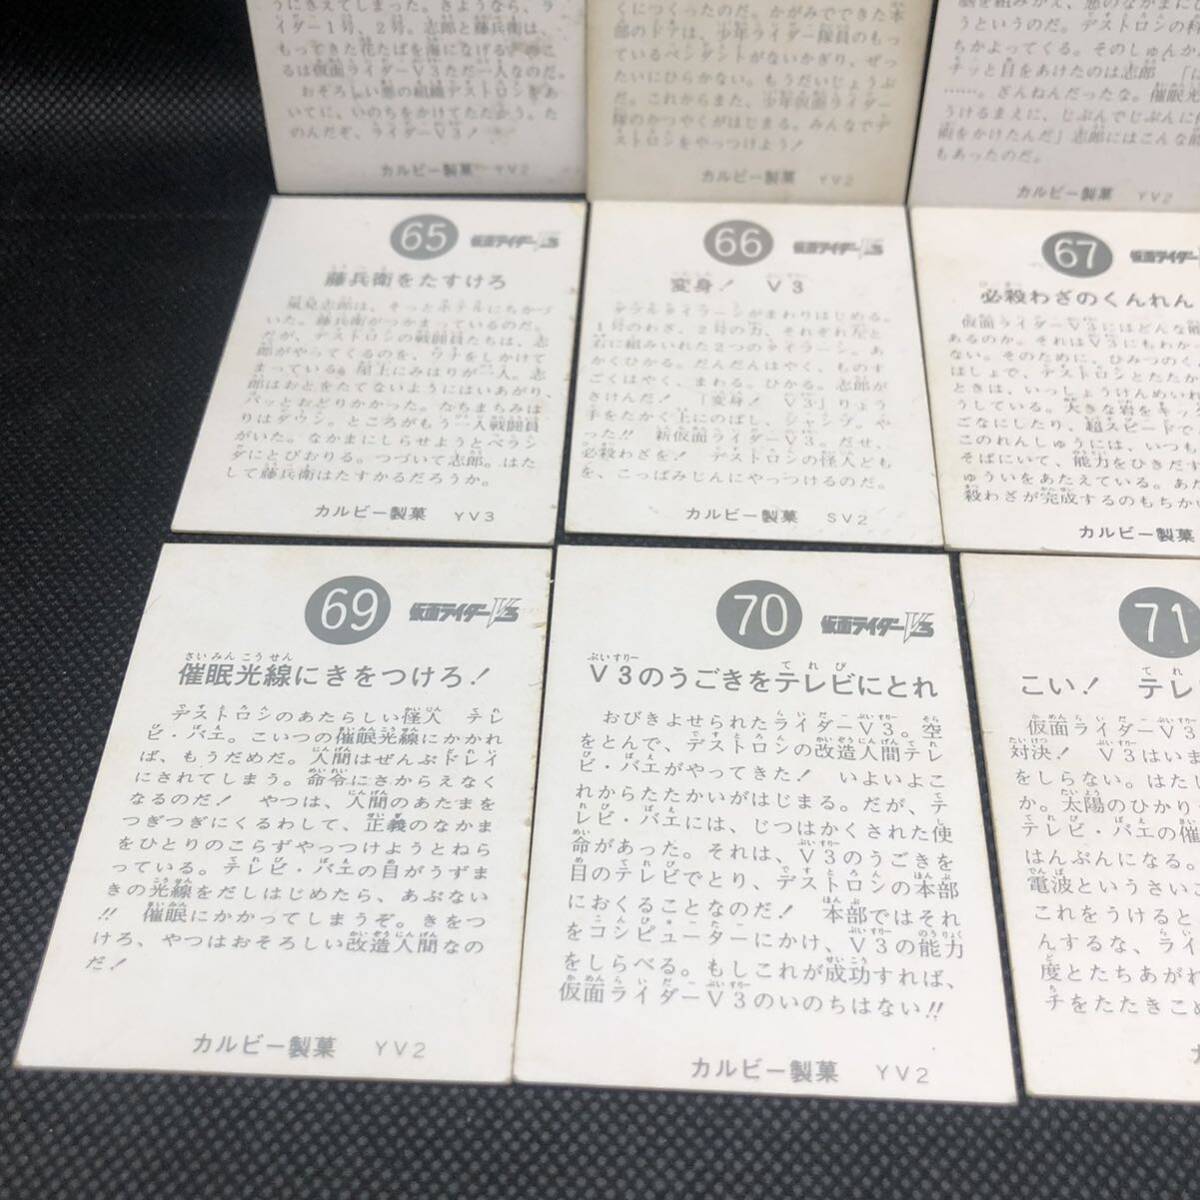 うにきえてしまった。さようなら、ラ
イダー1号、2号。志郎と藤兵衛は、
もってきた花たばを海になげる
るは仮面ライダーV3ただ一人なのだ。
おそろしい悪の組織デストロンをあ
いてに。いのちをかけてたたかう。た
のんだぞ、ライダーV3！
カルビー製菓 YV2
くにつくったのだ。かがみでできた本
部のドアは、少年ライダー隊員のもっ
ているペンダントがないかぎり、ぜっ
たいにひらかない。もうだいじょうぶ
だ。これからまた、少年仮面ライダー
隊のかつやくがはじまる。みんなでデ
ストロンをやっつけよう！
カルビー製菓 YV2
うというのだ。デストロンの科
ちかよってくる。そのしゅんか
チッと目をあけたのは志郎
……。ざんねんだったな。催眠光
うけるまえに、じぶんでじぶんに
術をかけたんだ」志郎にはこんな能
もあったのだ。
カルビー製菓 YV2
65 仮面ライダーV3
藤兵衛をたすけろ
風見志郎は、そっとホテルにちかづ
いた。藤兵衛がつかまっているのだ。
だが、デストロンの戦闘員たちは、志
郎がやってくるのを、ワナをしかけて
まっている。屋上にみはりが一人。志
郎はおとをたてないようにはいあがり、
パッとおどりかかった。たちまちみは
りはダウン。ところがもう一人戦闘員
がいた。なかまにしらせようとベラン
ダにとびおりる。つづいて志郎。はた
して藤兵衛はたすかるだろうか。
カルビー製菓 YV3
66 仮面ライダーV3
変身！ V3
ダブルタイフーンがまわりはじめる。
1号のわざ、2号の力、それぞれ左と
右に組みいれた2つのタイフーン。あ
かくひかる。だんだんはやく、ものす
ごくはやく、まわる。ひかる。志郎が
さけんだ！ 「変身！ V3」りょう
手をたかく上にのばし、ジャンプ。や
った!! 新仮面ライダーV3。だせ、
必殺わざを！ デストロンの怪人ども
を、こっぱみじんにやっつけるのだ。
カルビー製菓 SV2
67
必殺わざのくんれん
仮面ライダーV3にはどんな能
あるのか。それはV3にもわか
ない。そのために。ひみつのく
ばしょで、デストロンとたたか
ときは、いっしょうけんめいれ
うしている。大きな岩をキッ
ごなにしたり、超スピードで
このれんしゅうには、いつも
そばにいて、能力をひきだす
ゅういをあたえている。あた
殺わざが完成するのもちか
カルビー製菓
69 仮面ライダーV3
さいみんこうせん
催眠光線にきをつけろ！
デストロンのあたらしい怪人 テレ
ビ・バエ。こいつの催眠光線にかかれ
ば、もうだめだ。人間はぜんぶドレイ
にされてしまう。命令にさからえなく
なるのだ！ やつは、人間のあたまを
つぎつぎにくるわして、正義のなかま
をひとりのこらずやっつけようとねら
っている。テレビ・バエの目がうずま
きの光線をだしはじめたら、あぶない
!! 催眠にかかってしまうぞ。きをつ
けろ、やつはおそろしい改造人間なの
だ！
カルビー製菓 YV2
70 仮面ライダーV3
ぶいすりー てれび
V3のうごきをテレビにとれ
おびきよせられたライダーV3。空
をとんで、デストロンの改造人間テレ
ビ・バエがやってきた！ いよいよこ
れからたたかいがはじまる。だが、テ
レビ・バエには、じつはかくされた使
命があった。それは、V3のうごきを
目のテレビでとり、デストロンの本部
におくることなのだ！ 本部ではそれ
をコンピューターにかけ、V3の能力
をしらべる。もしこれが成功すれば、
仮面ライダーV3のいのちはない!!
カルビー製菓 YV2
71
こい！ テレ
仮面ライダーV3
対決！ V3はいま
をしらない。はた
か。太陽のひかり
テレビ・バエの催
はんぶんになる。
電波というさいご
これをうけると
んするな、ライ
度とたちあがれ
チをたたきこめ